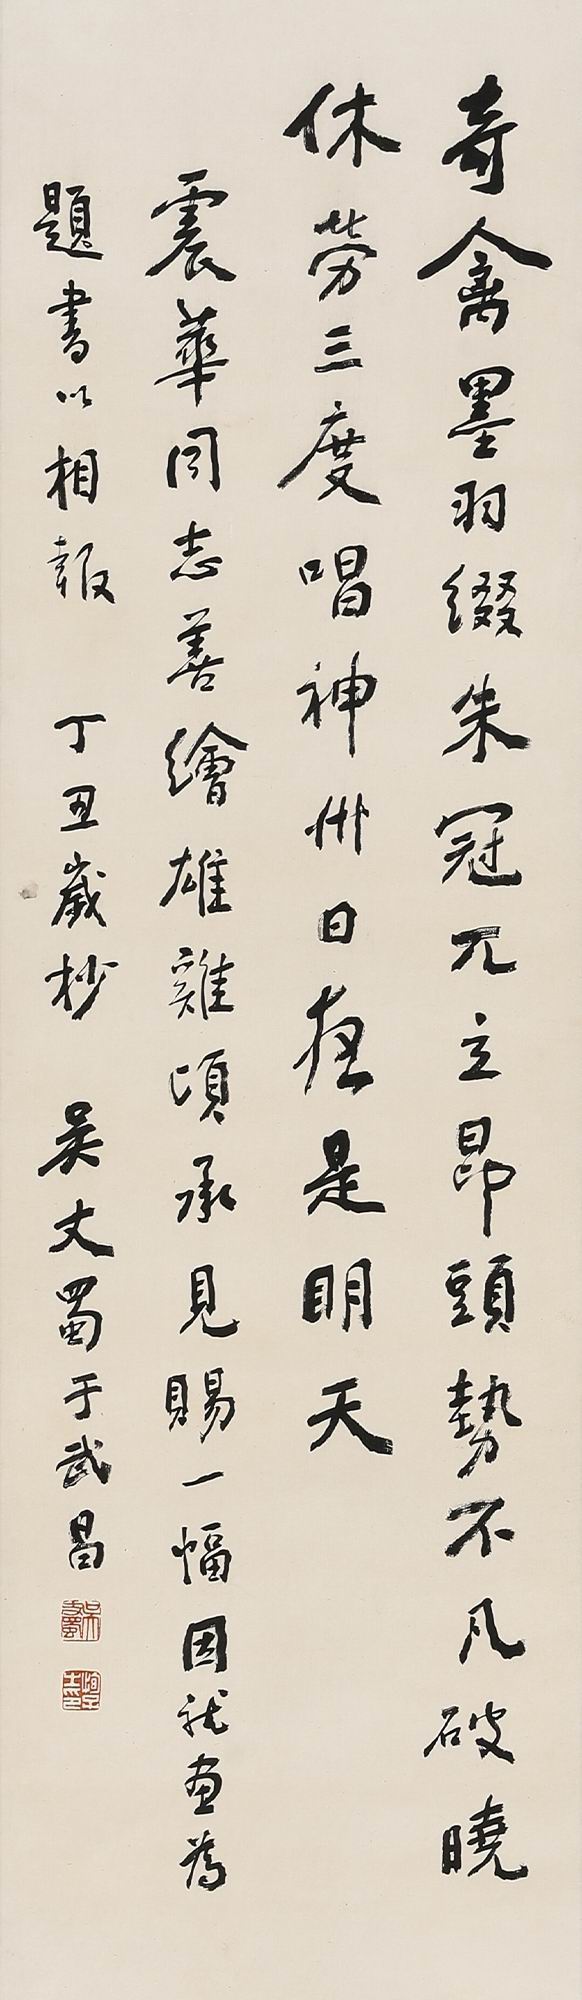 奇禽墨羽缀朱冠兀立昂頭勢不凡破曉
休劳三度唱神州日夜是明天
震華同志善繪雄雞頃承見賜一幅因就画為
題書以相報 丁丑歲杪 吴丈蜀于武昌
吴丈蜀